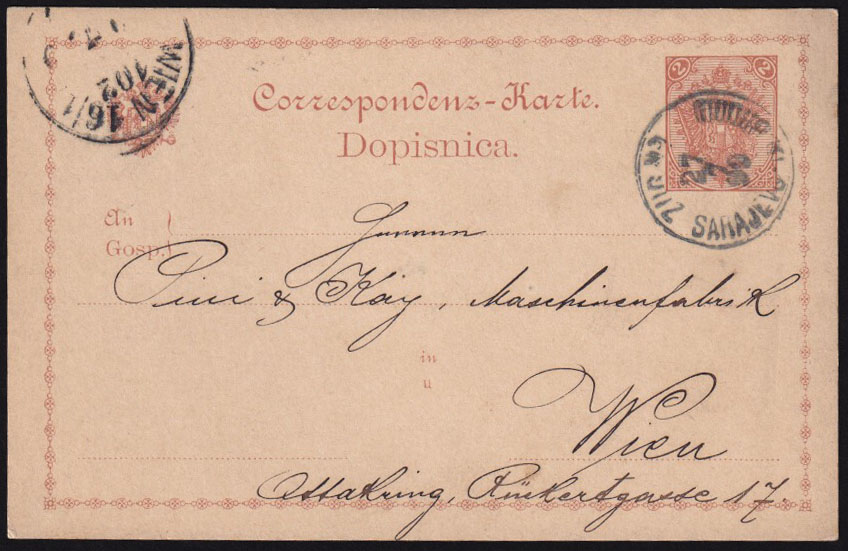 WIEN 16/1
102
2 2
Correspondenz-Karte.
Dopisnica.
27
7
SARAJEVO
An
Gosp.
Herren
Pini & Kay, Maschinenfabrik
in
u
Wien
Ottakring, Rückertgasse 17.